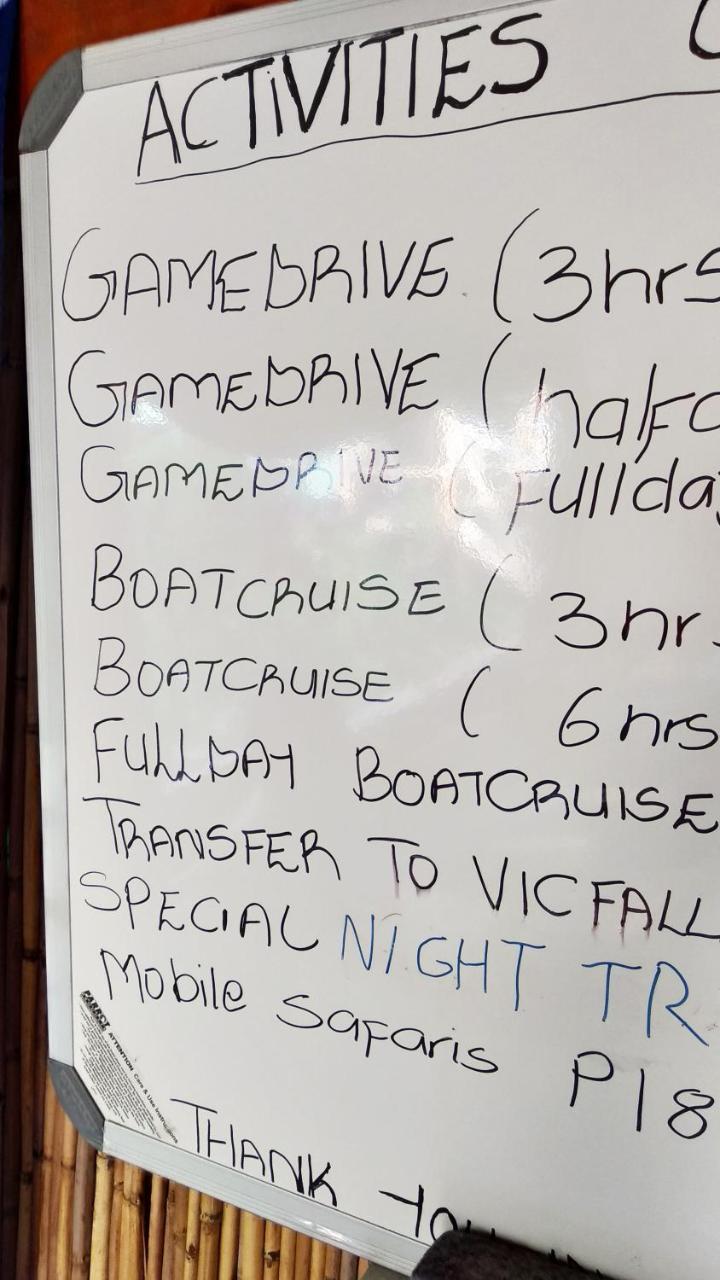 ACTIVITIES
GAMEDRIVE (3hrs
GAMEDRIVE (halfd
GAMEDRIVE (Fullday
BOATCRUISE (3hrs
BOATCRUISE (6hrs
FULLDAY BOATCRUISE
TRANSFER TO VICFALL
SPECIAL NIGHT TR
Mobile Safaris P18
PARROT
ATTENTION Care & Use Instructions
THANK You